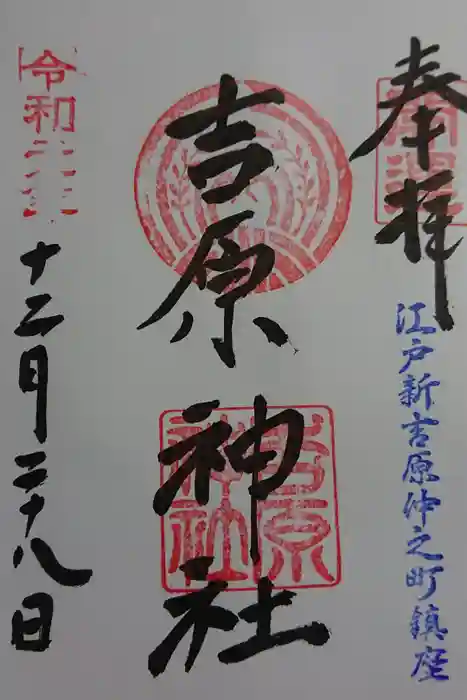 奉拝
江戸新吉原仲之町鎮座
吉原神社
吉原神社
令和二年
十二月二十八日